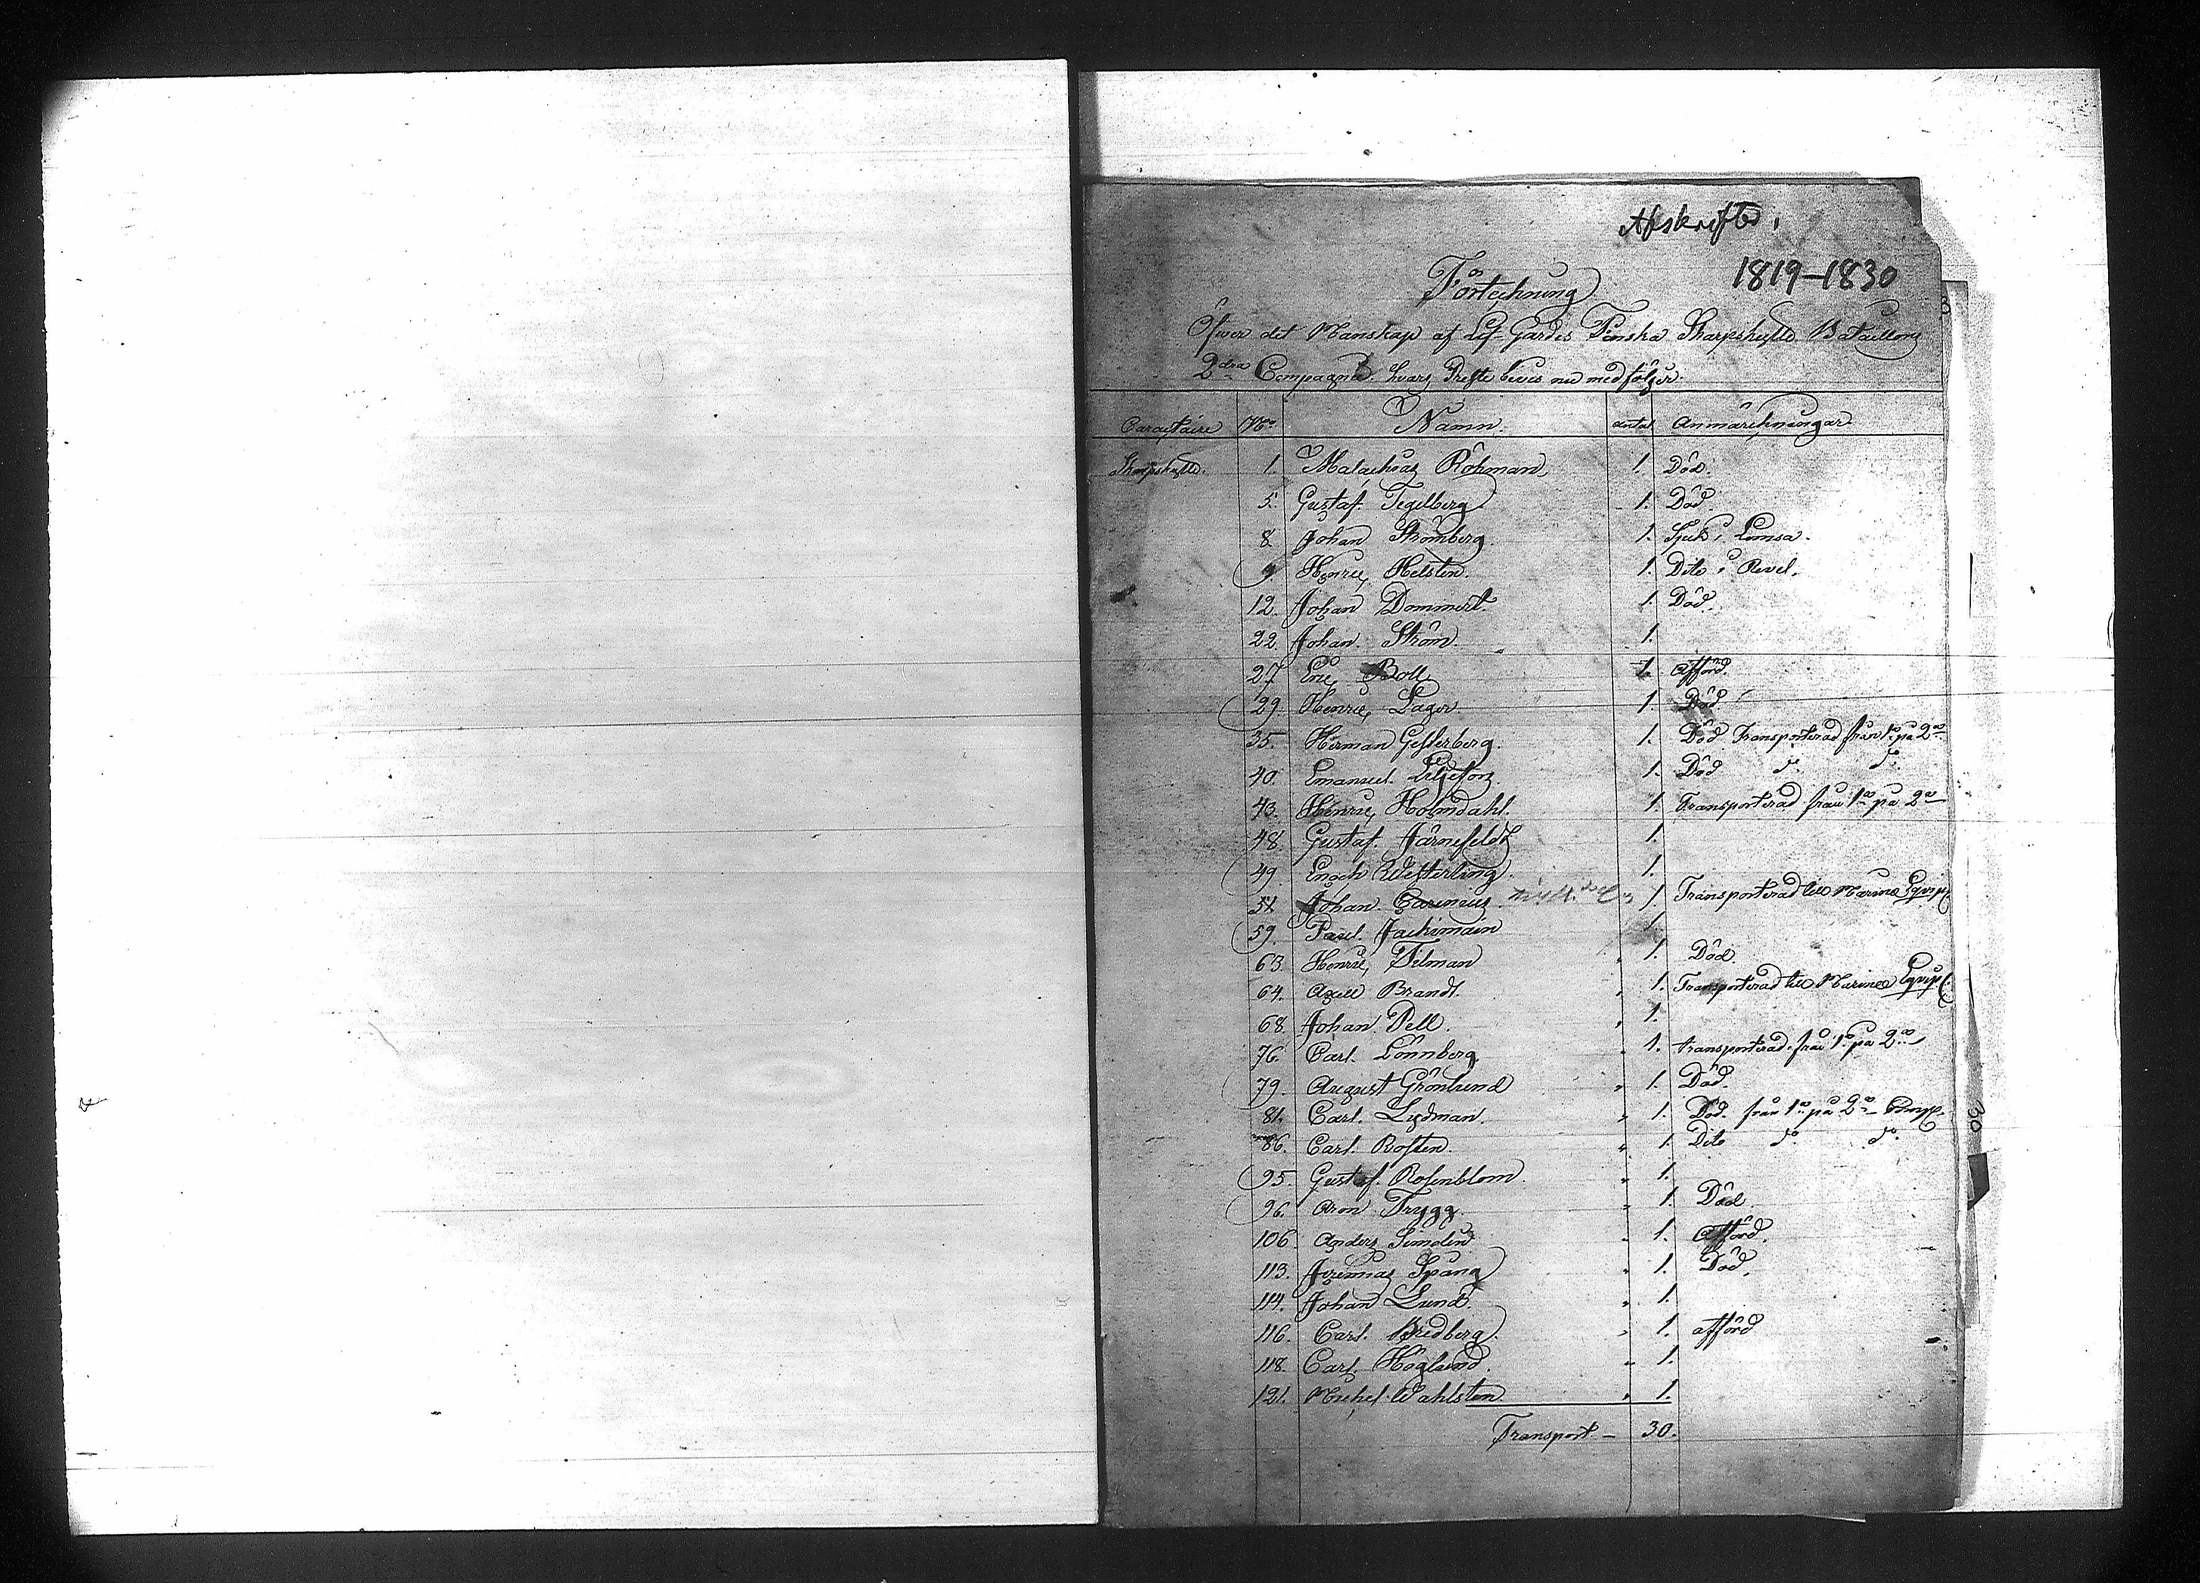 Afskrifter
1819-1830
Förtechning
Öfwer det Manskap af Lif-Gardes Finska Skarpskytte Bataillons
2dra Compagnie hvars Prestebevis nu medföljer.
Caractaire No Namn. antal Anmärchningar.
Skarpskytte. 1. Malachias Röhman, 1. Död.
5. Gustaf Tegelberg 1. Död.
8. Johan Strömberg. 1. Sjuk i Lomsa.
9. Henric Helsten. 1. Dito i Revel.
12. Johan Dommert. 1. Död.
22. Johan Ström. 1.
27. Eric Boll 1. afförd.
29. Henric Lager. 1. Död
35. Herman Gesterberg. 1. Död Transporterad från 1a på 2a
40. Emanuel Liljefors 1. Död do do
43. Henric Holmdahl. 1. Transporterad från 1a på 2a
48. Gustaf Järnefeldt 1.
49. Enoch Westerling 1.
51. Johan Carenius 1. Transporterad till Marine Equip.
59. Paul Jackimain 1.
63. Henric Tilman 1. Död.
64. Axell Brandt. 1. Transporterad till Marine Equip.
68. Johan Pell. 1.
76. Carl Lönnberg 1. transporterad från 1a på 2a
79. August Grönlund 1. Död.
81. Carl Lydman. 1. Död. från 1a på 2a Comp.
86. Carl Rosten. 1. Dito do do
95. Gustaf Rosenblom. 1.
96. Aron Trygg 1. Död.
106. Anders Simolin 1. Afförd.
113. Jeremias Spång 1. Död.
114. Johan Lund. 1.
116. Carl Bredberg. 1. afförd
118. Carl Höglund. 1.
121. Michel Wahlsten 1.
Transport - 30.
30